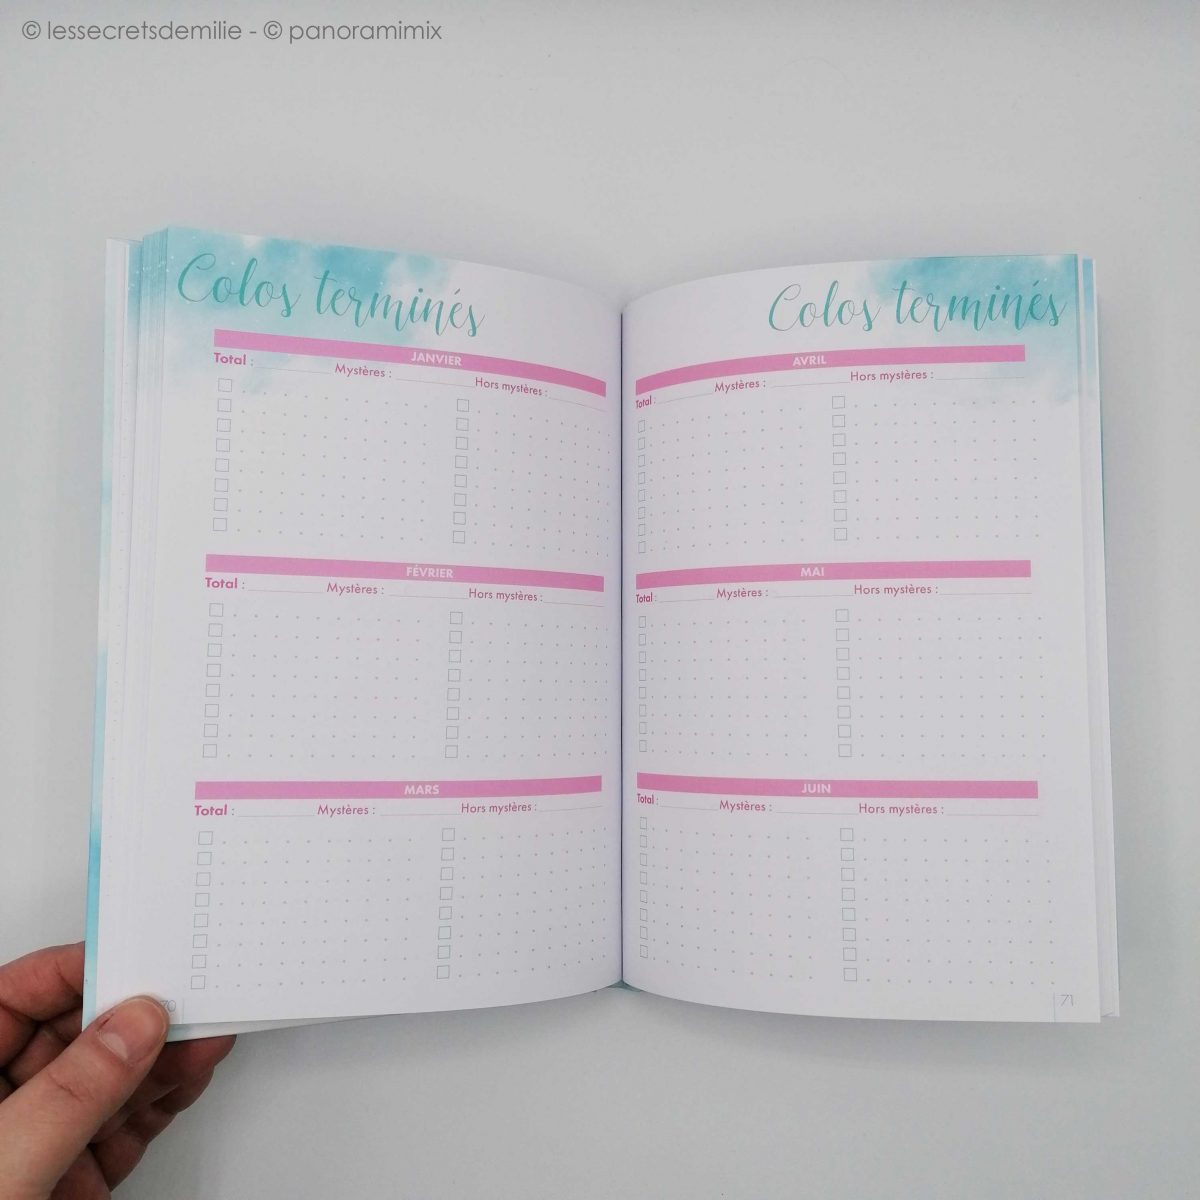 © lessecretsdemilie - © panoramimix
Colos terminés
JANVIER
Total : Mystères : Hors mystères :
FÉVRIER
Total : Mystères : Hors mystères :
MARS
Total : Mystères : Hors mystères :
70
Colos terminés
AVRIL
Total : Mystères : Hors mystères :
MAI
Total : Mystères : Hors mystères :
JUIN
Total : Mystères : Hors mystères :
71